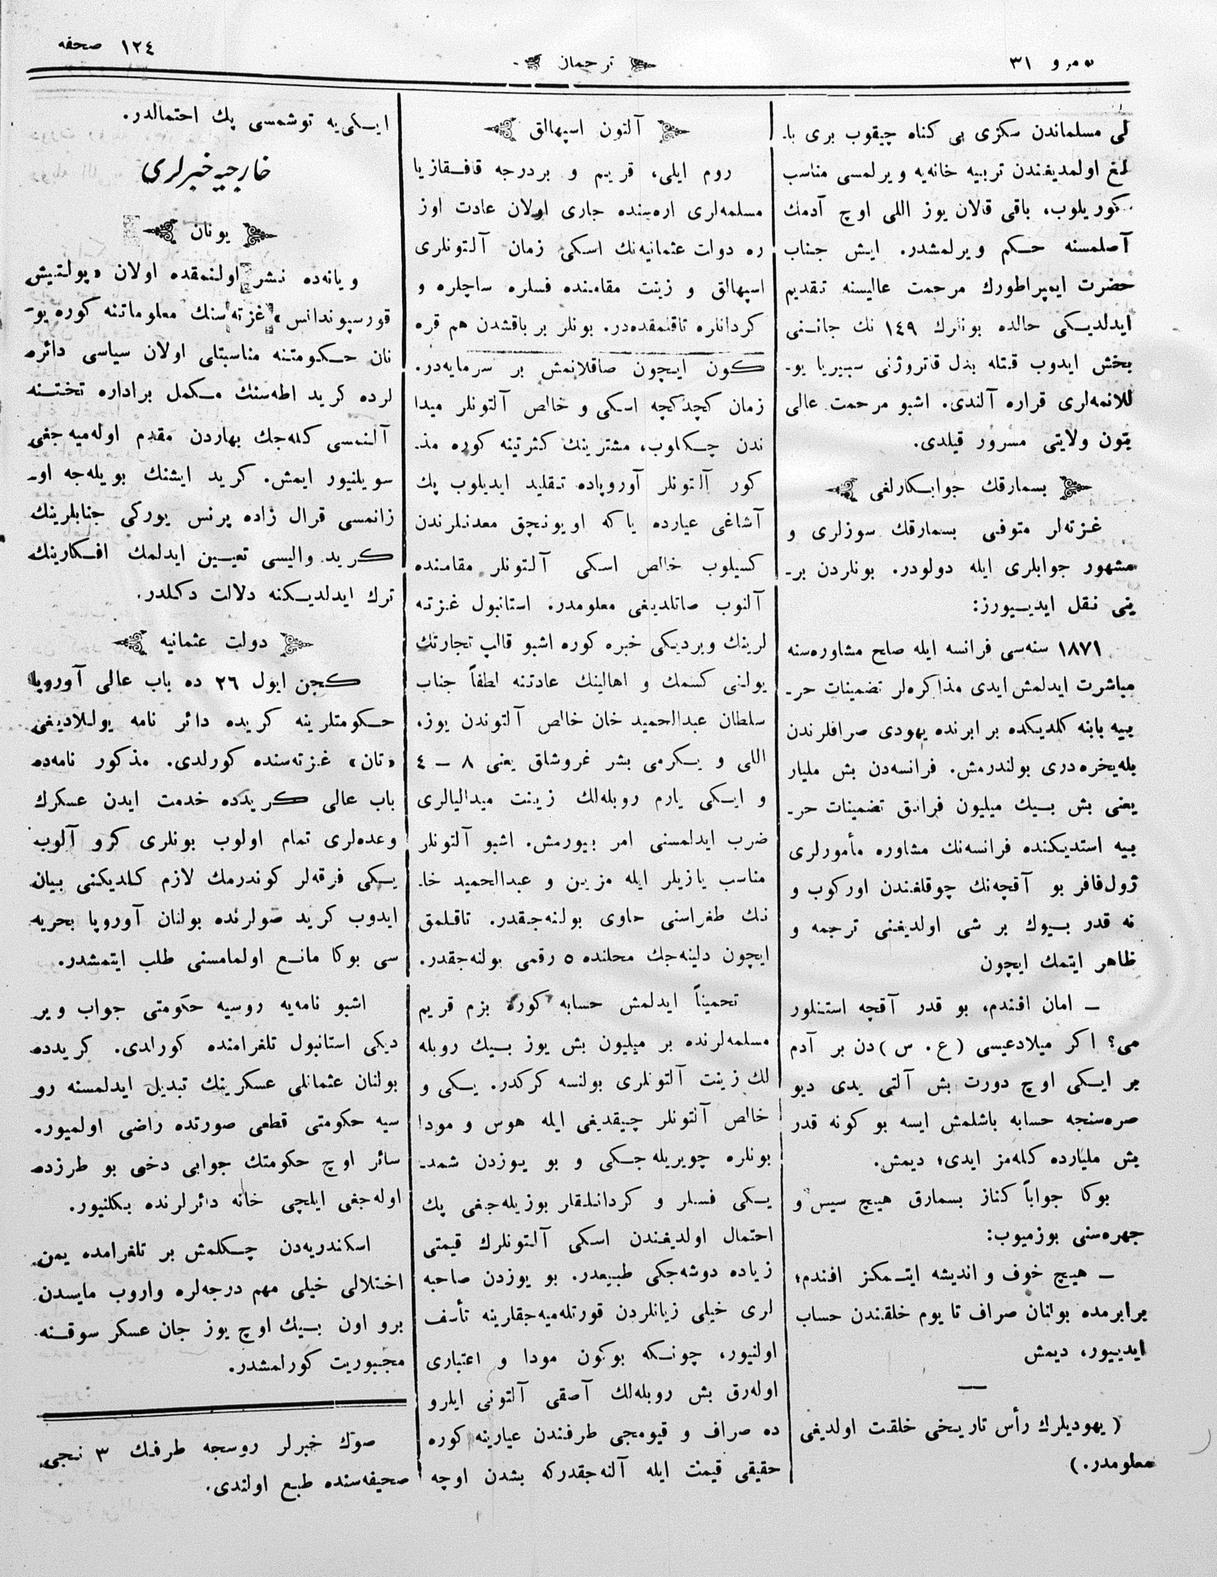 نومرو ٣١
ترجمان
١٢٤ صحفه
لی مسلماندن سكزی بی كناه چیقوب بری با-
لغ اولمدیغندن تربیه خانه‌یه ویرلمسی مناسب
كوریلوب، باقی قالان یوز اللی اوچ آدمك
آصلمسنه حكم ویرلمشدر. ایش جناب
حضرت ایمپراطورك مرحمت عالیسنه تقدیم
ایدلدیكی حالده بونلرك ١٤٩ نك جانـنی
بخش ایدوب قتله بدل قاتروژنی سیبریا یو-
للانمه‌لری قراره آلندی. اشبو مرحمت عالی
بتون ولایتی مسرور قیلدی.
بسمارقك جوابكارلغی
غزته‌لر متوفی بسمارقك سوزلری و
مشهور جوابلری ایله دولودر. بوناردن بر-
ینی نقل ایدییورز:
١٨٧١ سنه‌سی فرانسه ایله صلح مشاوره‌سنه
مباشرت ایدلمش ایدی مذاكره‌لر تضمینات حر-
بیه بابنه كلدیكده برابرنده یهودی صرافلرندن
بله‌یخره‌دری بولندرمش. فرانسه‌دن بش ملیار
یعنی بش بیك میلیون فرانق تضمینات حر-
بیه استدیكنده فرانسه‌نك مشاوره مأمورلری
ژول‌فافر بو آقچه‌نك چوقلغندن اوركوب و
نه قدر بیوك بر شی اولدیغنی ترجمه و
ظاهر ایتمك ایچون
— امان افندم، بو قدر آقچه استنلور
می؟ اكر میلادعیسی (ع. س) دن بر آدم
بر ایكی اوچ دورت بش آلتی یدی دیو
صره‌سنجه حسابه باشلمش ایسه بو كونه قدر
بش ملیارده كله‌مز ایدی؛ دیمش.
بوكا جواباً كناز بسمارق هیچ سیس و
جهره‌سنی بوزمیوب:
— هیچ خوف و اندیشه ایتـمكز افندم؛
برابرمده بولنان صراف تا یوم خلقندن حساب
ایدییور، دیمش
—
( یهودیلرك رأس تاریخی خلقت اولدیغی
معلومدر.)
آلتون اسپهالق
روم ایلی، قریم و بردرجه قافقازیا
مسلمه‌لری اره‌سنده جاری اولان عادت اوز
ره دولت عثمانیه‌نك اسكی زمان آلتونلری
اسپهالق و زینت مقامنده فسلره ساچلره و
كردانلره تاقنمقده‌در. بونلر بر باقشدن هم قره
كون ایچون صاقلانمش بر سرمایه‌در.
زمان كچدكچه اسكی و خالص آلتونلر میدا
ندن چكلوب، مشترینك كثرتینه كوره مذ-
كور آلتونلر آوروپاده تقلید ایدیلوب پك
آشاغی عیارده یاكه اویونچق معدنلرندن
كسیلوب خالص اسكی آلتونلر مقامنده
آلنوب صاتلدیغی معلومدر. استانبول غزته
لرینك ویردیكی خبره كوره اشبو قالپ تجارتك
یولنی كسمك و اهالینك عادتنه لطفاً جناب
سلطان عبدالحمید خان خالص آلتوندن یوز،
اللی و یكرمی بشر غروشلق یعنی ٨ — ٤
و ایكی یارم روبله‌لك زینت میدالیالری
ضرب ایدلمسنی امر بیورمش. اشبو آلتونلر
مناسب یازیلر ایله مزین و عبدالحمید خا-
نك طغراسنی حاوی بولنه‌جقدر. تاقلمق
ایچون دلینه‌جك محلنده ٥ رقمی بولنه‌جقدر.
تخمیناً ایدلمش حسابه كوره بزم قریم
مسلمه‌لرنده بر میلیون بش یوز بیك روبله
لك زینت آلتونلری بولنسه كركدر. یكی و
خالص آلتونلر چیقدیغی ایله هوس و مودا
بونلره چویریله‌جكی و بو یوزدن شمد-
یكی فسلر و كردانلقلر بوزیله‌جغی پك
احتمال اولدیغندن اسكی آلتونلرك قیمتی
زیاده دوشه‌جكی طبیعدر. بو یوزدن صاحبه
لری خیلی زیانلردن قورتله‌میه‌جقلرینه تأسف
اولنیور، چونكه بوكون مودا و اعتباری
اوله‌رق بش روبله‌لك آصقی آلتونی ایلرو
ده صراف و قیومجی طرفندن عیارینه كوره
حقیقی قیمت ایله آلنه‌جقدركه بشدن اوچه
ایكی‌یه توشمسی پك احتمالدر.
خارجیه خبرلری
یونان
ویانه‌ده نشر اولنمقده اولان «پولتیش
قورسپوندانس» غزته‌سنك معلوماتنه كوره یو-
نان حكومتنه مناسبتلی اولان سیاسی دائره
لرده كرید اطه‌سنك مكمل براداره تختـنه
آلنمسی كله‌جك بهاردن مقدم اوله‌میه‌جغی
سویلنیور ایمش. كرید ایشنك بویله‌جه او-
زانمسی قرال زاده پرنس یوركی جنابلرینك
كرید والیسی تعیین ایدلمك افكارینك
ترك ایدلدیكنه دلالت دكلدر.
دولت عثمانیه
كچن ایول ٢٦ ده باب عالی آوروپا
حكومتلرینه كریده دائر نامه یوللادیغی
«تان» غزته‌سنده كورلدی. مذكور نامه‌ده
باب عالی كریدده خدمت ایدن عسكرك
وعده‌لری تمام اولوب بونلری كرو آلوب
یكی فرقه‌لر كوندرمك لازم كلدیكنی بیان
ایدوب كرید صولرنده بولنان آوروپا بحریه
سی بوكا مانع اولمامسنی طلب ایتمشدر.
اشبو نامه‌یه روسیه حكومتی جواب ویر
دیكی استانبول تلغرامنده كورلدی. كریدده
بولنان عثمانلی عسكرینك تبدیل ایدلمسنه رو
سیه حكومتی قطعی صورتده راضی اولمیور.
سائر اوچ حكومتك جوابی دخی بو طرزده
اوله‌جغی ایلچی خانه دائرلرنده بكلنیور.
اسكندریه‌دن چكلمش بر تلغرامده یمن
اختلالی خیلی مهم درجه‌لره واروب مایسدن
برو اون بیك اوچ یوز جان عسكر سوقنه
مجبوریت كورلمشدر.
صوك خبرلر روسجه طرفك ٣ نجی
صحیفه‌سنده طبع اولندی.